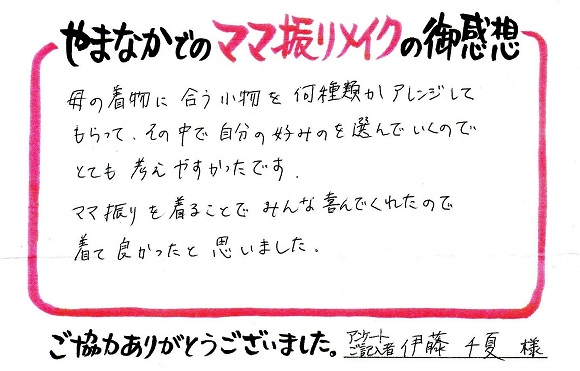 やまなかでのママ振りメイクの御感想
母の着物に合う小物を何種類かアレンジして
もらって、その中で自分の好みのを選んでいくので
とても考えやすかったです.
ママ振りを着ることでみんな喜んでくれたので
着て良かったと思いました.
ご協力ありがとうございました。アンケートご記入者 伊藤 千夏 様